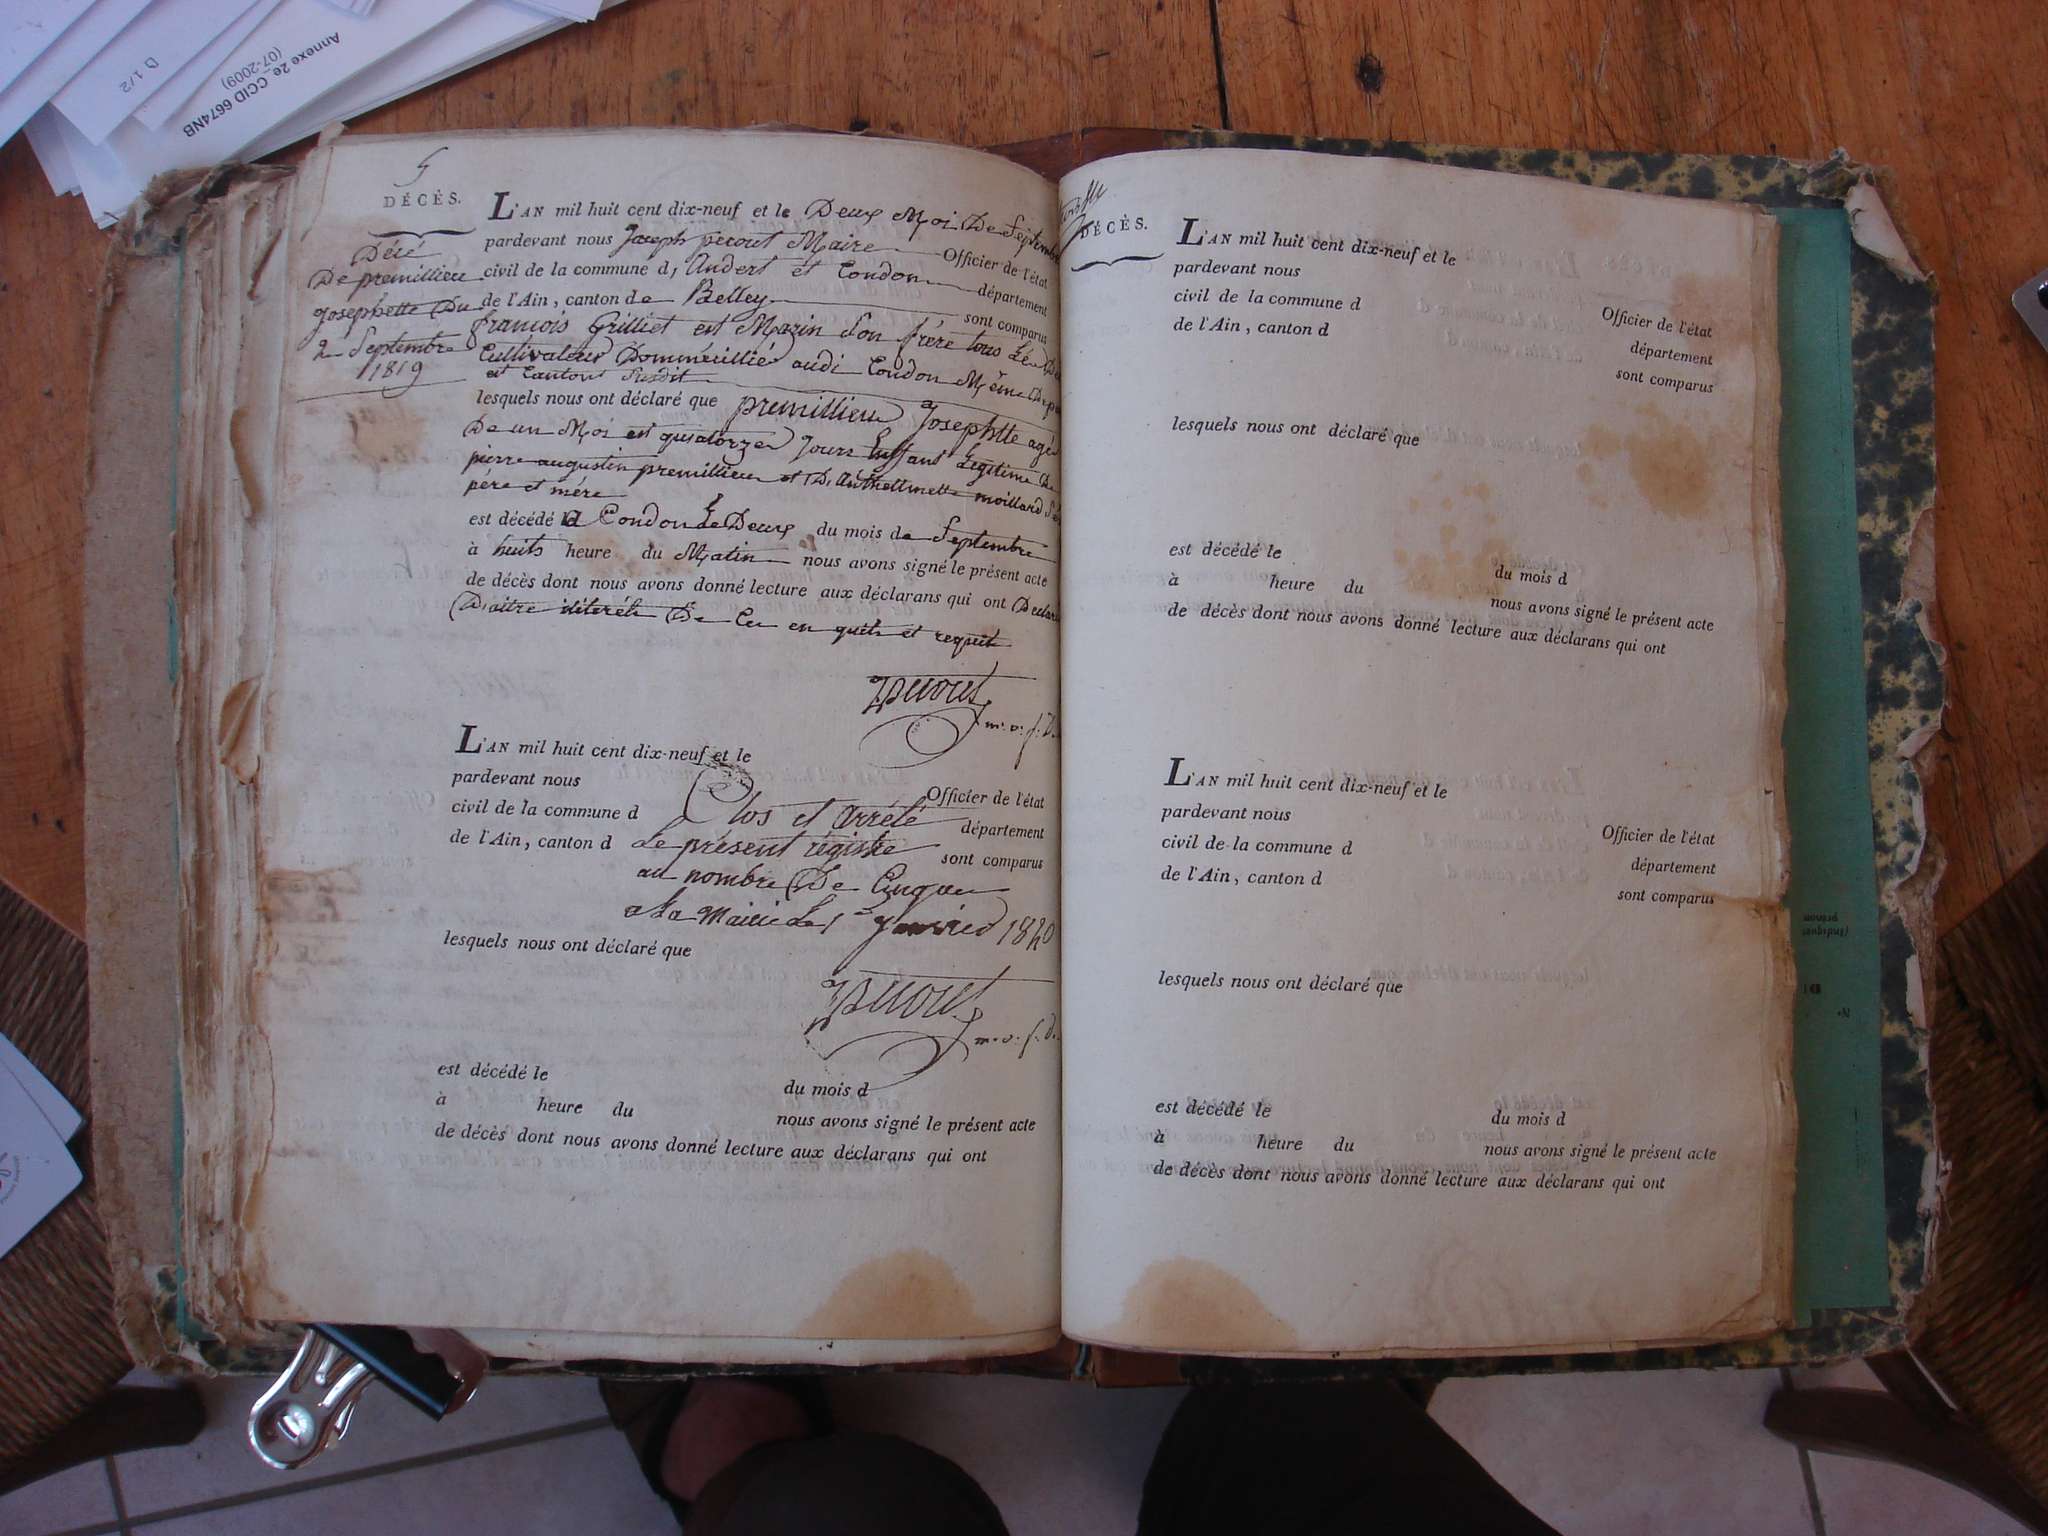 Annexe 2e_CCID 6674NB
(07-2009)
D 1/2
5
DÉCÈS.
Décé
De premillieu
Josephette Du
2 Septembre
1819
L'AN mil huit cent dix-neuf et le Deux Moi De Septembre
pardevant nous Joseph pecout Maire Officier de l'état
civil de la commune d, Andert et Condon département
de l'Ain, canton de Belley sont comparus
francois Grilliet est Marin Son frére tous
Cultivateur Domméuillié audi Condon Méme
et Canton Susdit
lesquels nous ont déclaré que premillieu Josephtte agé
De un Moi est quatorze Jours Enffant Légitime De
pierre augustin premillieu et D, Anthelmette moillard
pére et mére
est décédé a Condon Le Deux du mois de Septembre
à huits heure du Matin nous avons signé le présent acte
de décès dont nous avons donné lecture aux déclarans qui ont
D,aitre De Ce en quits et requit
Pecout
m. o. f. D.
L'AN mil huit cent dix-neuf et le
pardevant nous
Officier de l'état
civil de la commune d
Clos et arrété
département
de l'Ain, canton d
Le présent régistre
sont comparus
au nombre De Cinq
a La Mairie Le 1er Janvier 1820
lesquels nous ont déclaré que
Pecout
m. o. f. d.
est décédé le
du mois d
à heure du
nous avons signé le présent acte
de décès dont nous avons donné lecture aux déclarans qui ont
DÉCÈS.
L'AN mil huit cent dix-neuf et le
pardevant nous
Officier de l'état
civil de la commune d
département
de l'Ain, canton d
sont comparus
lesquels nous ont déclaré que
est décédé le
du mois d
à heure du
nous avons signé le présent acte
de décès dont nous avons donné lecture aux déclarans qui ont
L'AN mil huit cent dix-neuf et le
pardevant nous
Officier de l'état
civil de la commune d
département
de l'Ain, canton d
sont comparus
lesquels nous ont déclaré que
est décédé le
du mois d
à heure du
nous avons signé le présent acte
de décès dont nous avons donné lecture aux déclarans qui ont